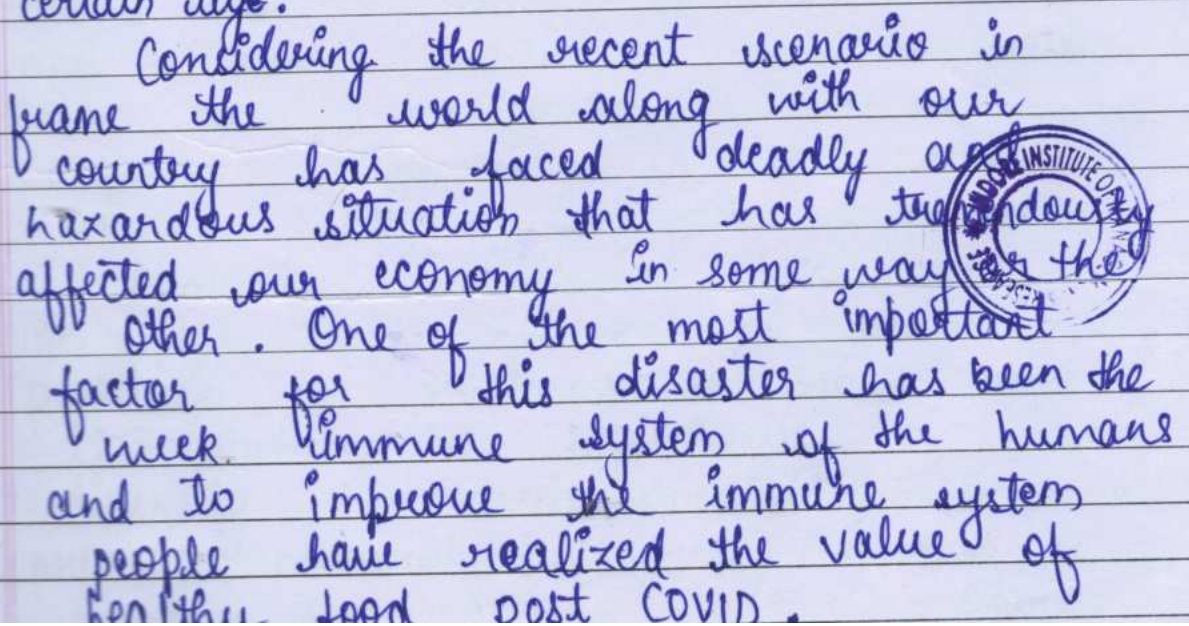 certain age.
Considering the recent scenario in
frame the world along with our
country has faced deadly and
hazardous situation that has tremendously
affected our economy in some way or the
other. One of the most important
factor for this disaster has been the
week immune system of the humans
and to improve the immune system
people have realized the value of
healthy food post COVID.
INDORE INSTITUTE OF